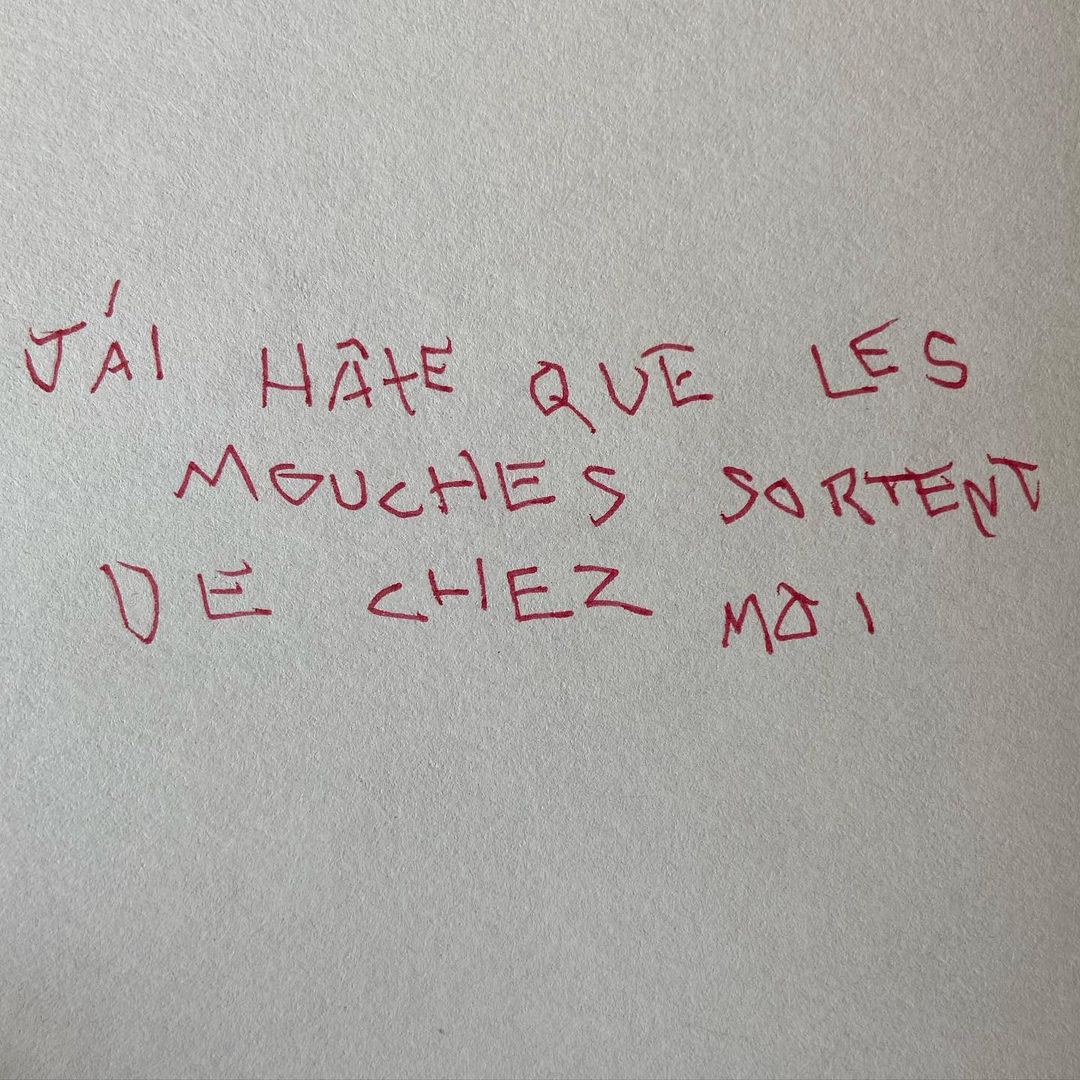 J'AI HÂTE QUE LES
MOUCHES SORTENT
DE CHEZ MOI